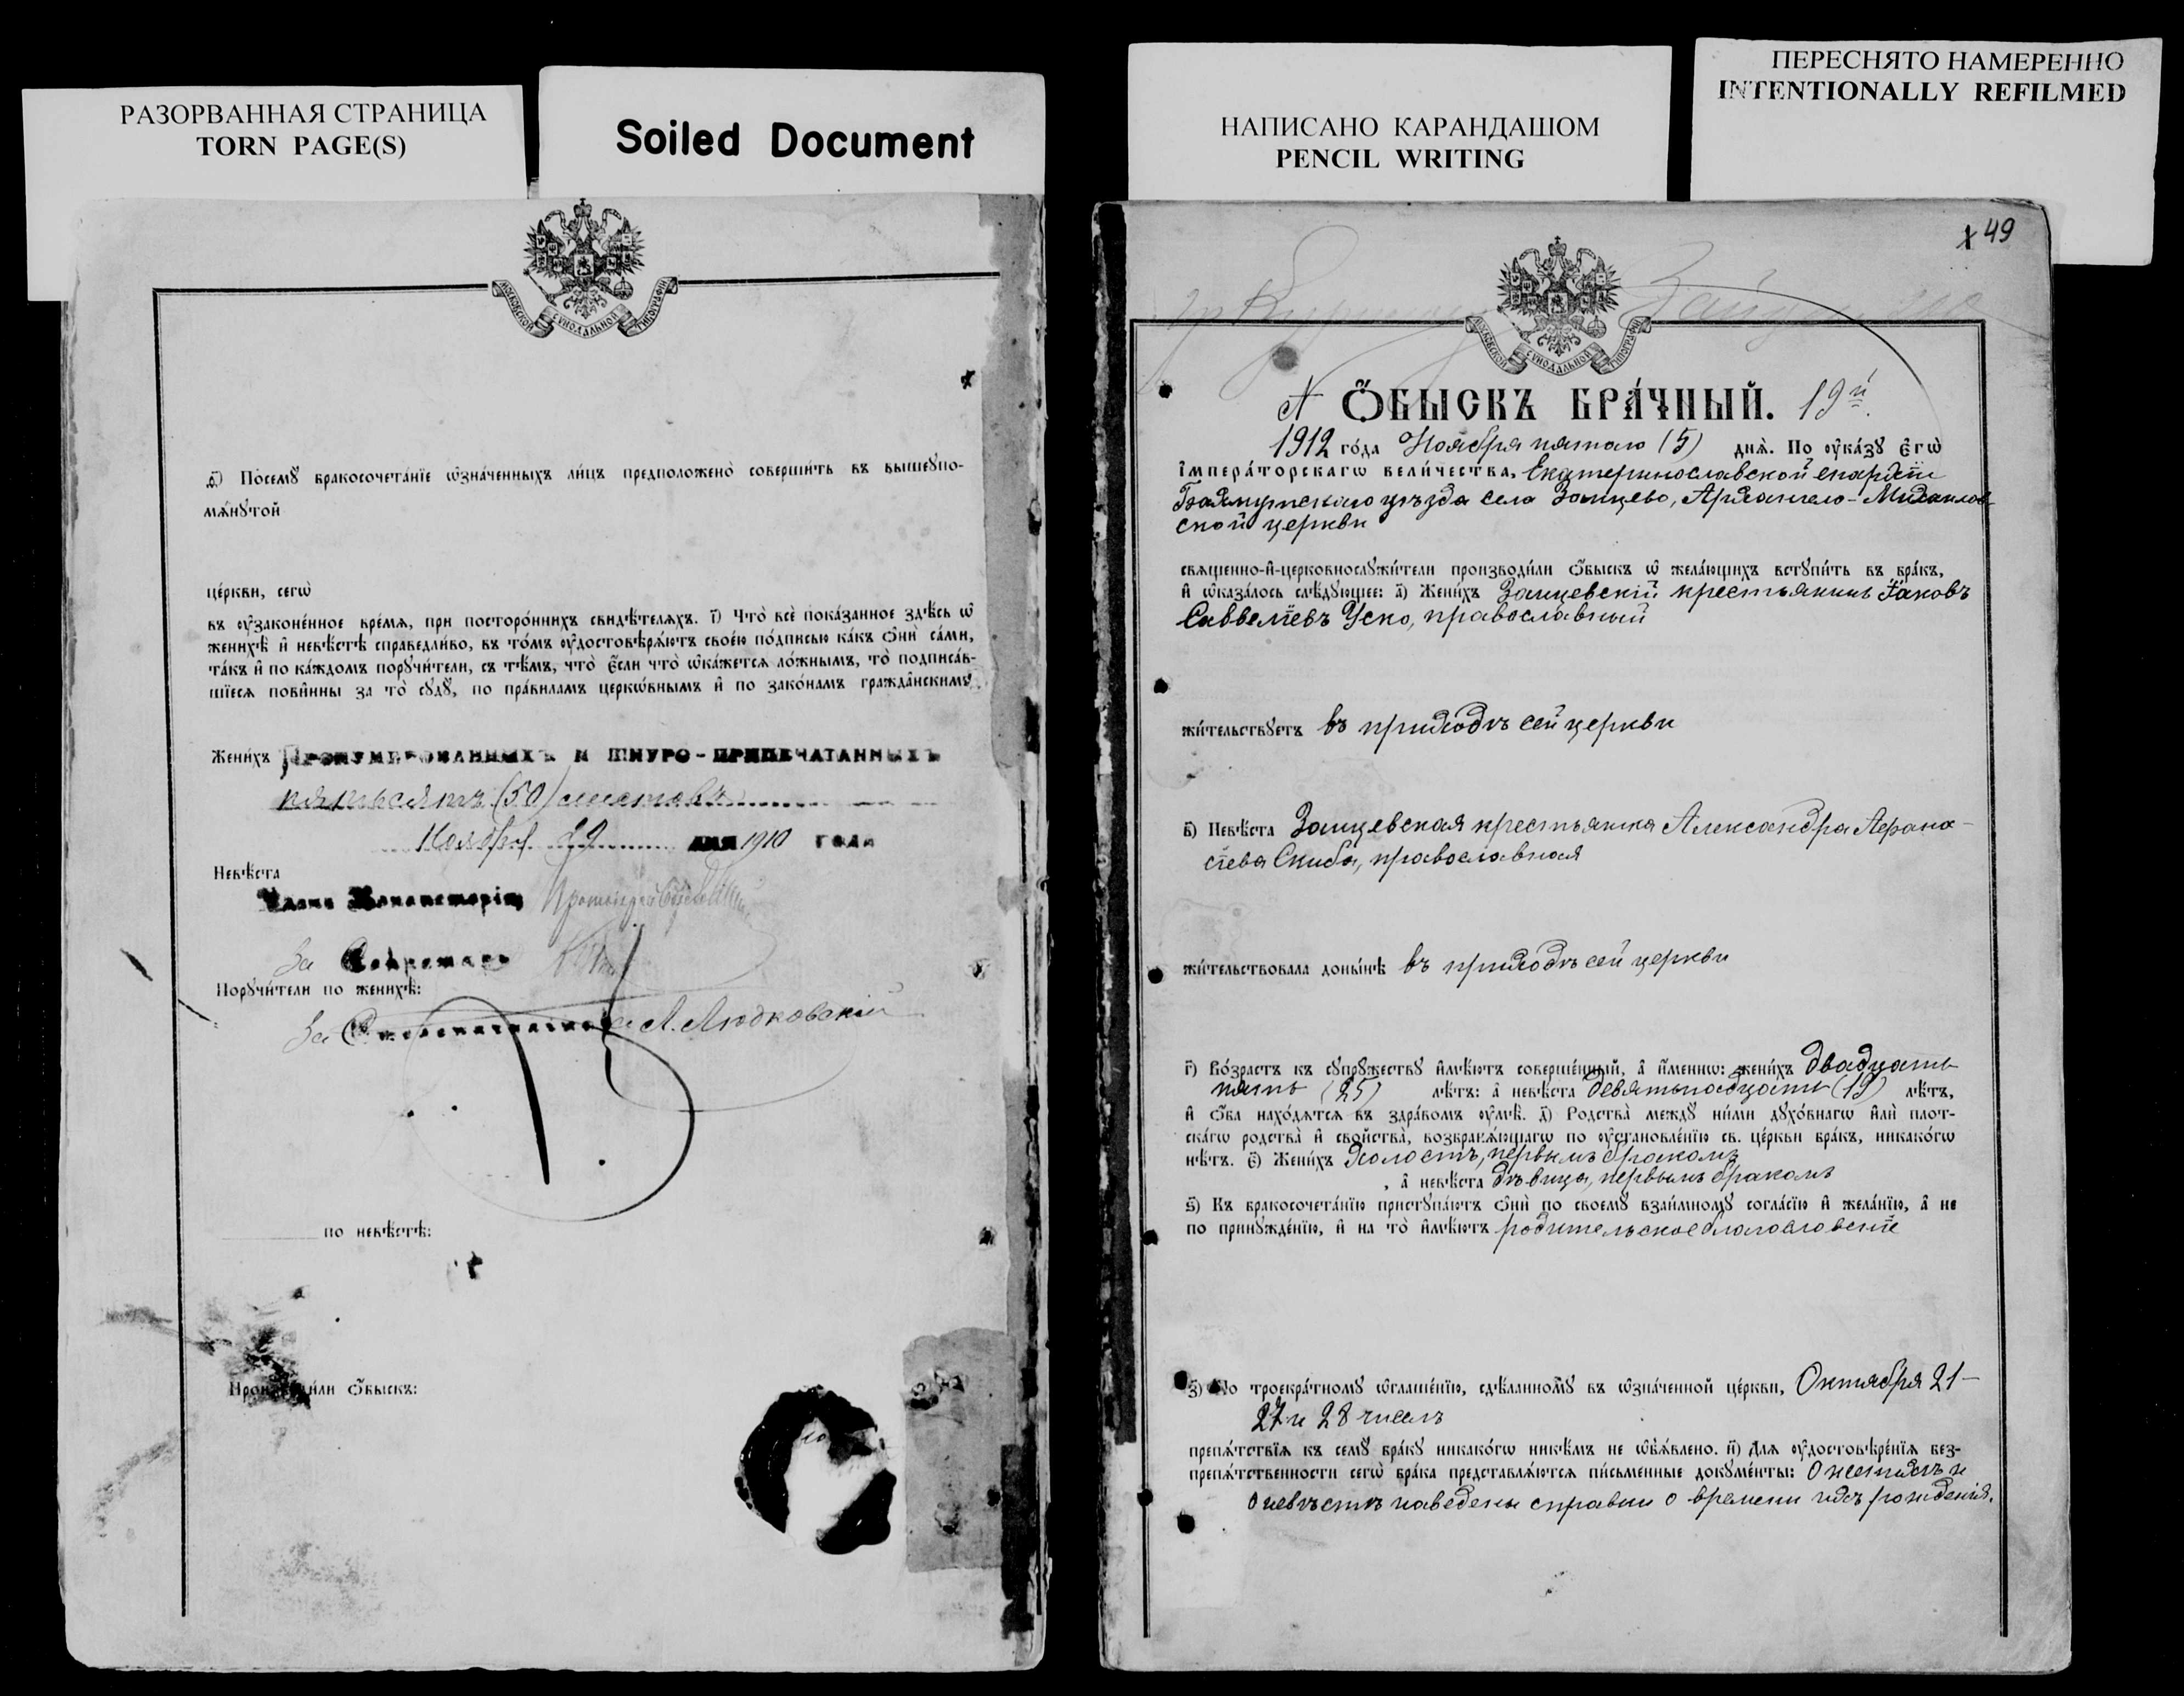 РАЗОРВАННАЯ СТРАНИЦА
TORN PAGE(S)
Soiled Document
МОСКОВСКОЙ СУНОДАЛЬНОЙ ТИПОГРАФІИ
д҃і) Посемꙋ̀ бракосочета́нїе ѡ҆зна́ченныхъ ли́цъ предположено̀ соверши́ть въ вышеꙋпо-
мѧ́нꙋтой
це́ркви, сегѡ̀
въ ᲂу҆зако́ненное вре́мѧ, при посторо́ннихъ свидѣ́телѧхъ. і҃) Что̀ всѐ пока́занное здѣ́сь ѡ҆
женихѣ̀ и҆ невѣ́стѣ справедли́во, въ то́мъ ᲂу҆достовѣрѧ́ютъ свое́ю по́дписью ка́къ ѻ҆нѝ са́ми,
та́къ и҆ по ка́ждомъ порꙋчи́тели, съ тѣ́мъ, что̀ є҆́сли что̀ ѡ҆ка́жетсѧ ло́жнымъ, то̀ подписа́в-
шїесѧ пови́нны за то̀ сꙋдꙋ̀, по пра́виламъ церкѡ́внымъ и҆ по зако́намъ гражда́нскимꙋ
Жени́хъ ПРОНУМЕРОВАННЫХЪ И ШНУРО-ПРИПЕЧАТАННЫХЪ
пятьдесятъ (50) листовъ
Ноября 29 ДНЯ 1910 ГОДА
Невѣ́ста
Членъ Консисторіи Протоіерей
За Секретарь
Порꙋчи́тели по женихѣ̀:
За Столоначальника А. Людковскій
по невѣ́стѣ:
Производи́ли ѻ҆́быскъ:
НАПИСАНО КАРАНДАШОМ
PENCIL WRITING
ПЕРЕСНЯТО НАМЕРЕННО
INTENTIONALLY REFILMED
х 49
МОСКОВСКОЙ СУНОДАЛЬНОЙ ТИПОГРАФІИ
№ Ѻ҆́БЫСКЪ БРА́ЧНЫЙ. 19й
1912 го́да Ноября пятаго (5) днѧ̀. По ᲂу҆ка́зꙋ Є҆гѡ̀
І҆мпера́торскагѡ вели́чества, Екатеринославской епархіи
Бахмутскаго уѣзда села Зайцево, Архангело-Михайлов-
ской церкви
свѧще́нно-и҆-церковнослꙋжи́тели производи́ли ѻ҆́быскъ ѡ҆ жела́ющихъ встꙋпи́ть въ бра́къ,
и҆ ѡ҆каза́лось слѣ́дꙋющее: а҃) Жени́хъ Зайцевскій крестьянинъ Іаковъ
Саввеліевъ Уско, православный
жи́тельствꙋетъ въ приходѣ сей церкви
в҃) Невѣ́ста Зайцевская крестьянка Александра Афана-
сіева Скиба, православная
жи́тельствовала доны́нѣ въ приходѣ сей церкви
г҃) Во́зрастъ къ сꙋпрꙋ́жествꙋ и҆мѣ́ютъ соверше́нный, а҆ и҆́меннѡ: жени́хъ двадцать
пять (25) лѣ́тъ: а҆ невѣ́ста девятьнадцать (19) лѣ́тъ,
и҆ ѻ҆́ба нахо́дѧтсѧ въ здра́вомъ ᲂу҆мѣ̀. д҃) Родства̀ междꙋ̀ ни́ми дꙋхо́внагѡ и҆лѝ плот-
ска́гѡ родства̀ и҆ сво́йства, возбранѧ́ющагѡ по ᲂу҆становле́нїю св. це́ркви бра́къ, никако́гѡ
нѣ́тъ. є҃) Жени́хъ холостъ, первымъ бракомъ
, а҆ невѣ́ста дѣвица, первымъ бракомъ
ѕ҃) Къ бракосочета́нїю пристꙋпа́ютъ ѻ҆нѝ по своемꙋ̀ взаи́мномꙋ согла́сїю и҆ жела́нїю, а҆ не
по принꙋжде́нїю, и҆ на то̀ и҆мѣ́ютъ родительское благословеніе
з҃) По троекра́тномꙋ ѡ҆глаше́нїю, сдѣ́ланномꙋ въ ѡ҆зна́ченной це́ркви, Октября 21-
27 и 28 чиселъ
препѧ́тствїѧ къ семꙋ̀ бра́кꙋ никако́гѡ никѣ́мъ не ѡ҆бъѧ́влено. и҃) Длѧ ᲂу҆достовѣре́нїѧ без-
препѧ́тственности сегѡ̀ бра́ка представлѧ́ютсѧ пи́сьменные докꙋме́нты: О женихѣ и
о невѣстѣ наведены справки о времени ихъ рожденія.